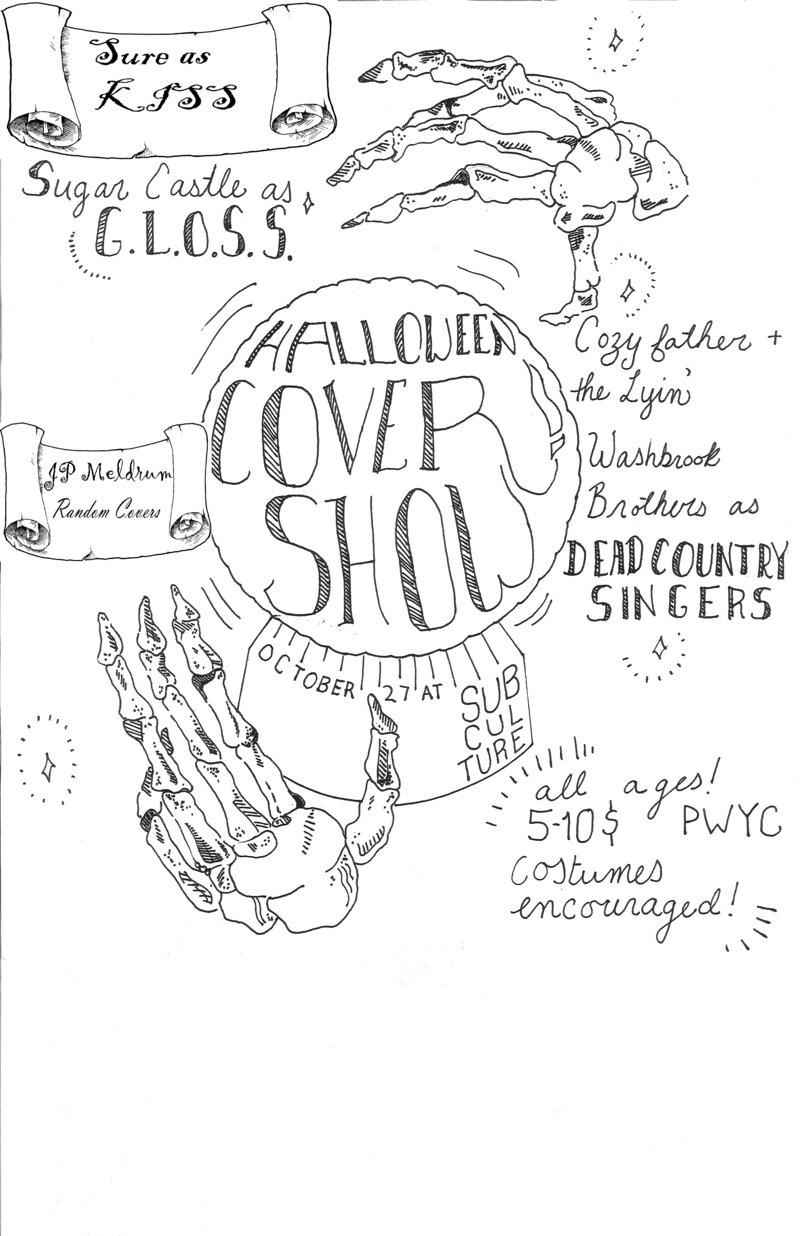 Sure as
KISS
Sugar Castle as
G.L.O.S.S.
HALLOWEEN
COVER
SHOW
Cozy father +
the Lyin'
Washbrook
Brothers as
DEAD COUNTRY
SINGERS
JP Meldrum
Random Covers
OCTOBER 27 AT
SUB
CUL
TURE
all ages!
5-10$ PWYC
costumes
encouraged!